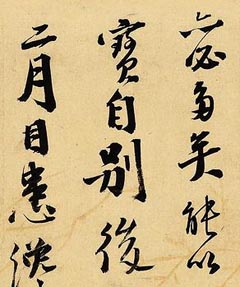 亦必多矣能以
寶自別後
二月目恙